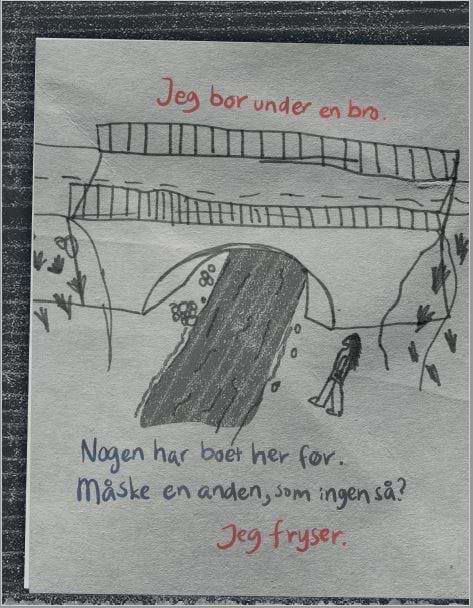 Jeg bor under en bro.
Nogen har boet her før.
Måske en anden, som ingen så?
Jeg fryser.